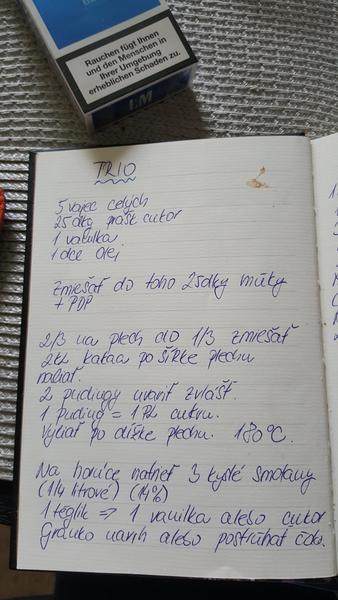 Rauchen fügt Ihnen
und den Menschen in
Ihrer Umgebung
erheblichen Schaden zu.
L&M
TRIO
5 vajec celých
25 dkg prášk cukor
1 vanilka
1 dcl olej
zmiešať do toho 25dkg múky
+ PDP
2/3 na plech do 1/3 zmiešať
2PL kakaa po šírke plechu
naliať.
2 pudingy uvariť zvlášť.
1 puding = 1PL cukru.
Vyliať po dĺžke plechu. 180°C.
Na horúce natrieť 3 kyslé smotany
(1/4 litrové) (14%)
1 téglik => 1 vanilka alebo cukor
Granko navrh alebo postrúhať čoko.